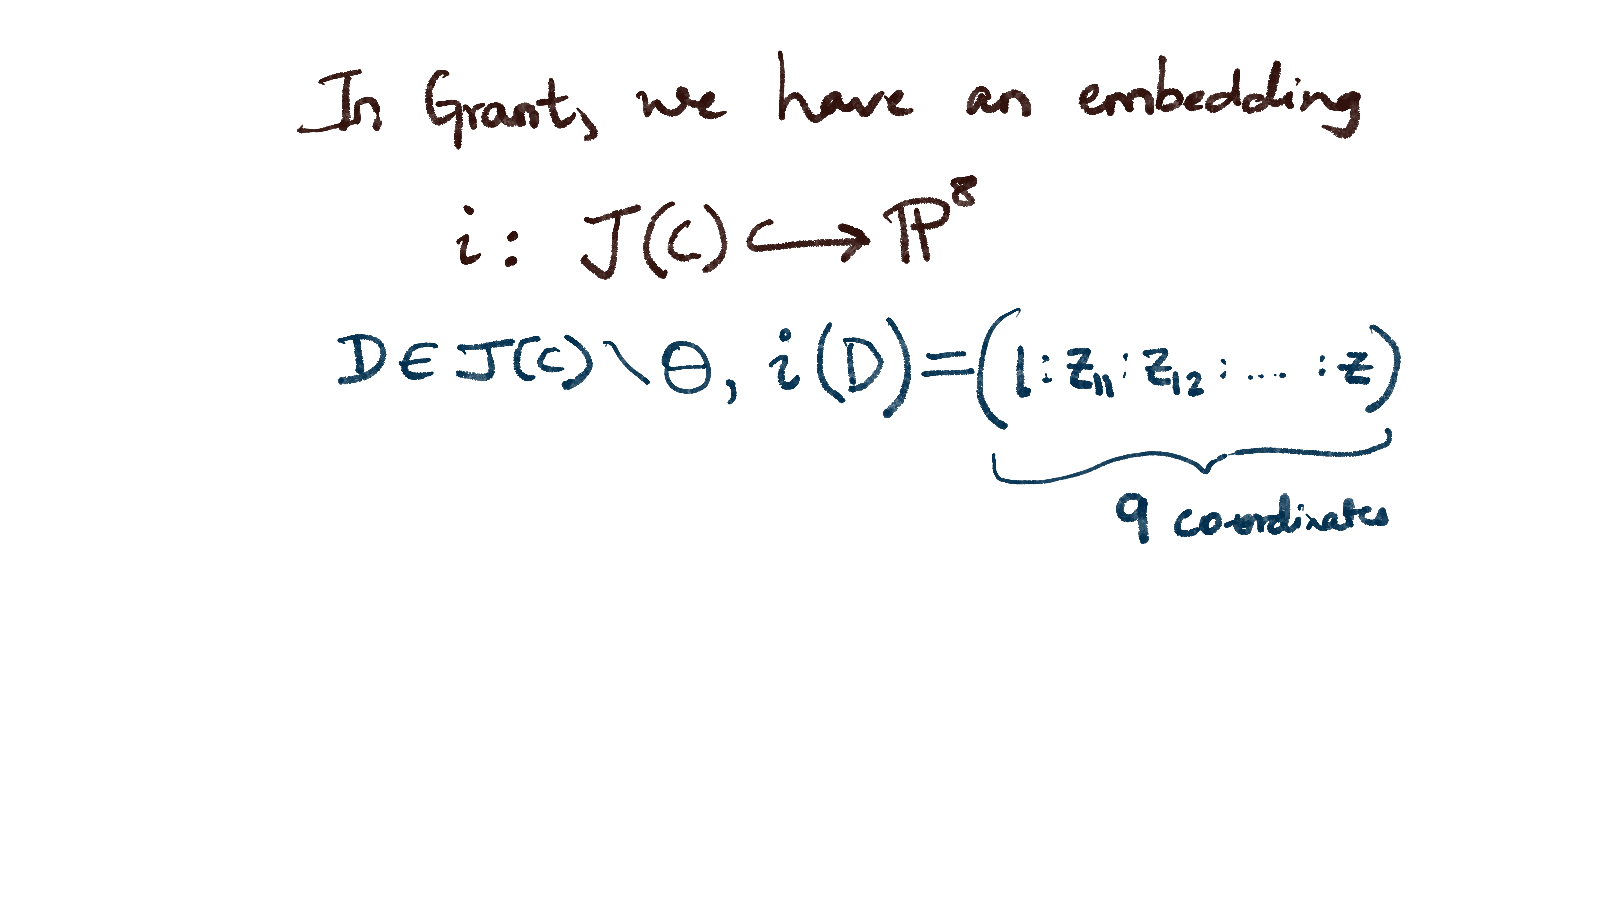 In Grant, we have an embedding
i : J(C) ↪ ℙ⁸
D ∈ J(C) \ Θ, i(D) = (1 : z₁₁ : z₁₂ : .... : z)
9 coordinates